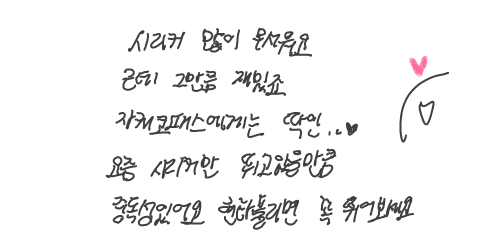 시리커 많이 무서워요
근데 그만큼 재밌죠
사이코패스에게는 딱인..♥
요즘 시리커만 뛰고있을만큼
중독성있어요 현타풀리면 꼭 뛰어보세요